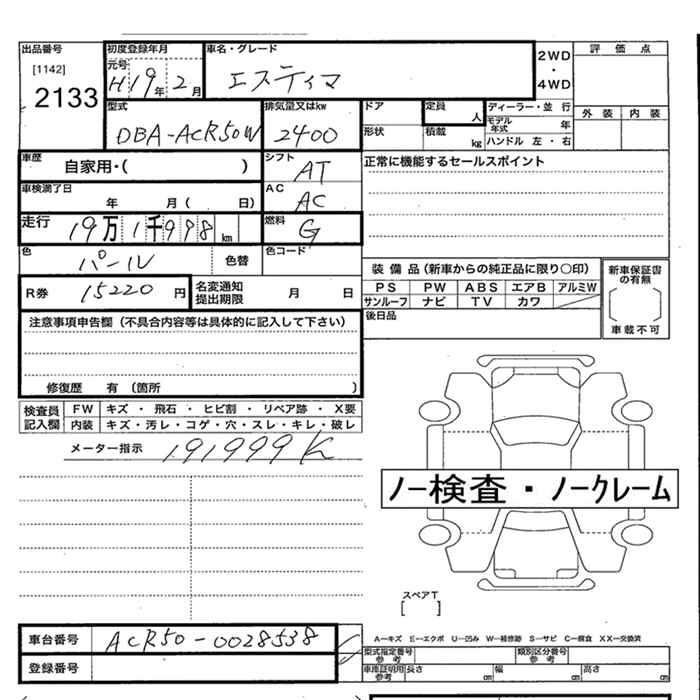 出品番号 初度登録年月 車名・グレード 2WD・4WD 評価点
[1142] 元号 H19年2月 エスティマ
2133 外装 内装
型式 排気量又はkw ドア 定員 人 ディーラー・並行
DBA-ACR50W 2400 形状 積載 kg モデル年式 年
ハンドル 左・右
車歴 自家用・( ) シフト AT 正常に機能するセールスポイント
車検満了日 年 月( 日) AC AC
走行 19万1千998km 燃料 G
色 パール 色替 色コード 装備品(新車からの純正品に限り○印) 新車保証書の有無
R券 15220円 名変通知提出期限 月 日 PS PW ABS エアB アルミW
サンルーフ ナビ TV カワ
注意事項申告欄(不具合内容等は具体的に記入して下さい) 後日品 車載不可
修復歴 有(箇所 )
検査員記入欄 FW キズ・飛石・ヒビ割・リペア跡・X要
内装 キズ・汚レ・コゲ・穴・スレ・キレ・破レ
メーター指示 191999K
ノー検査・ノークレーム
スペアT
[ ]
車台番号 ACR50-0028538 A-キズ E-エクボ U-凹み W-補修跡 S-サビ C-腐食 XX-交換済
登録番号 型式指定番号 参考 類別区分番号 参考
車庫証明用 参考 長さ cm 幅 cm 高さ cm